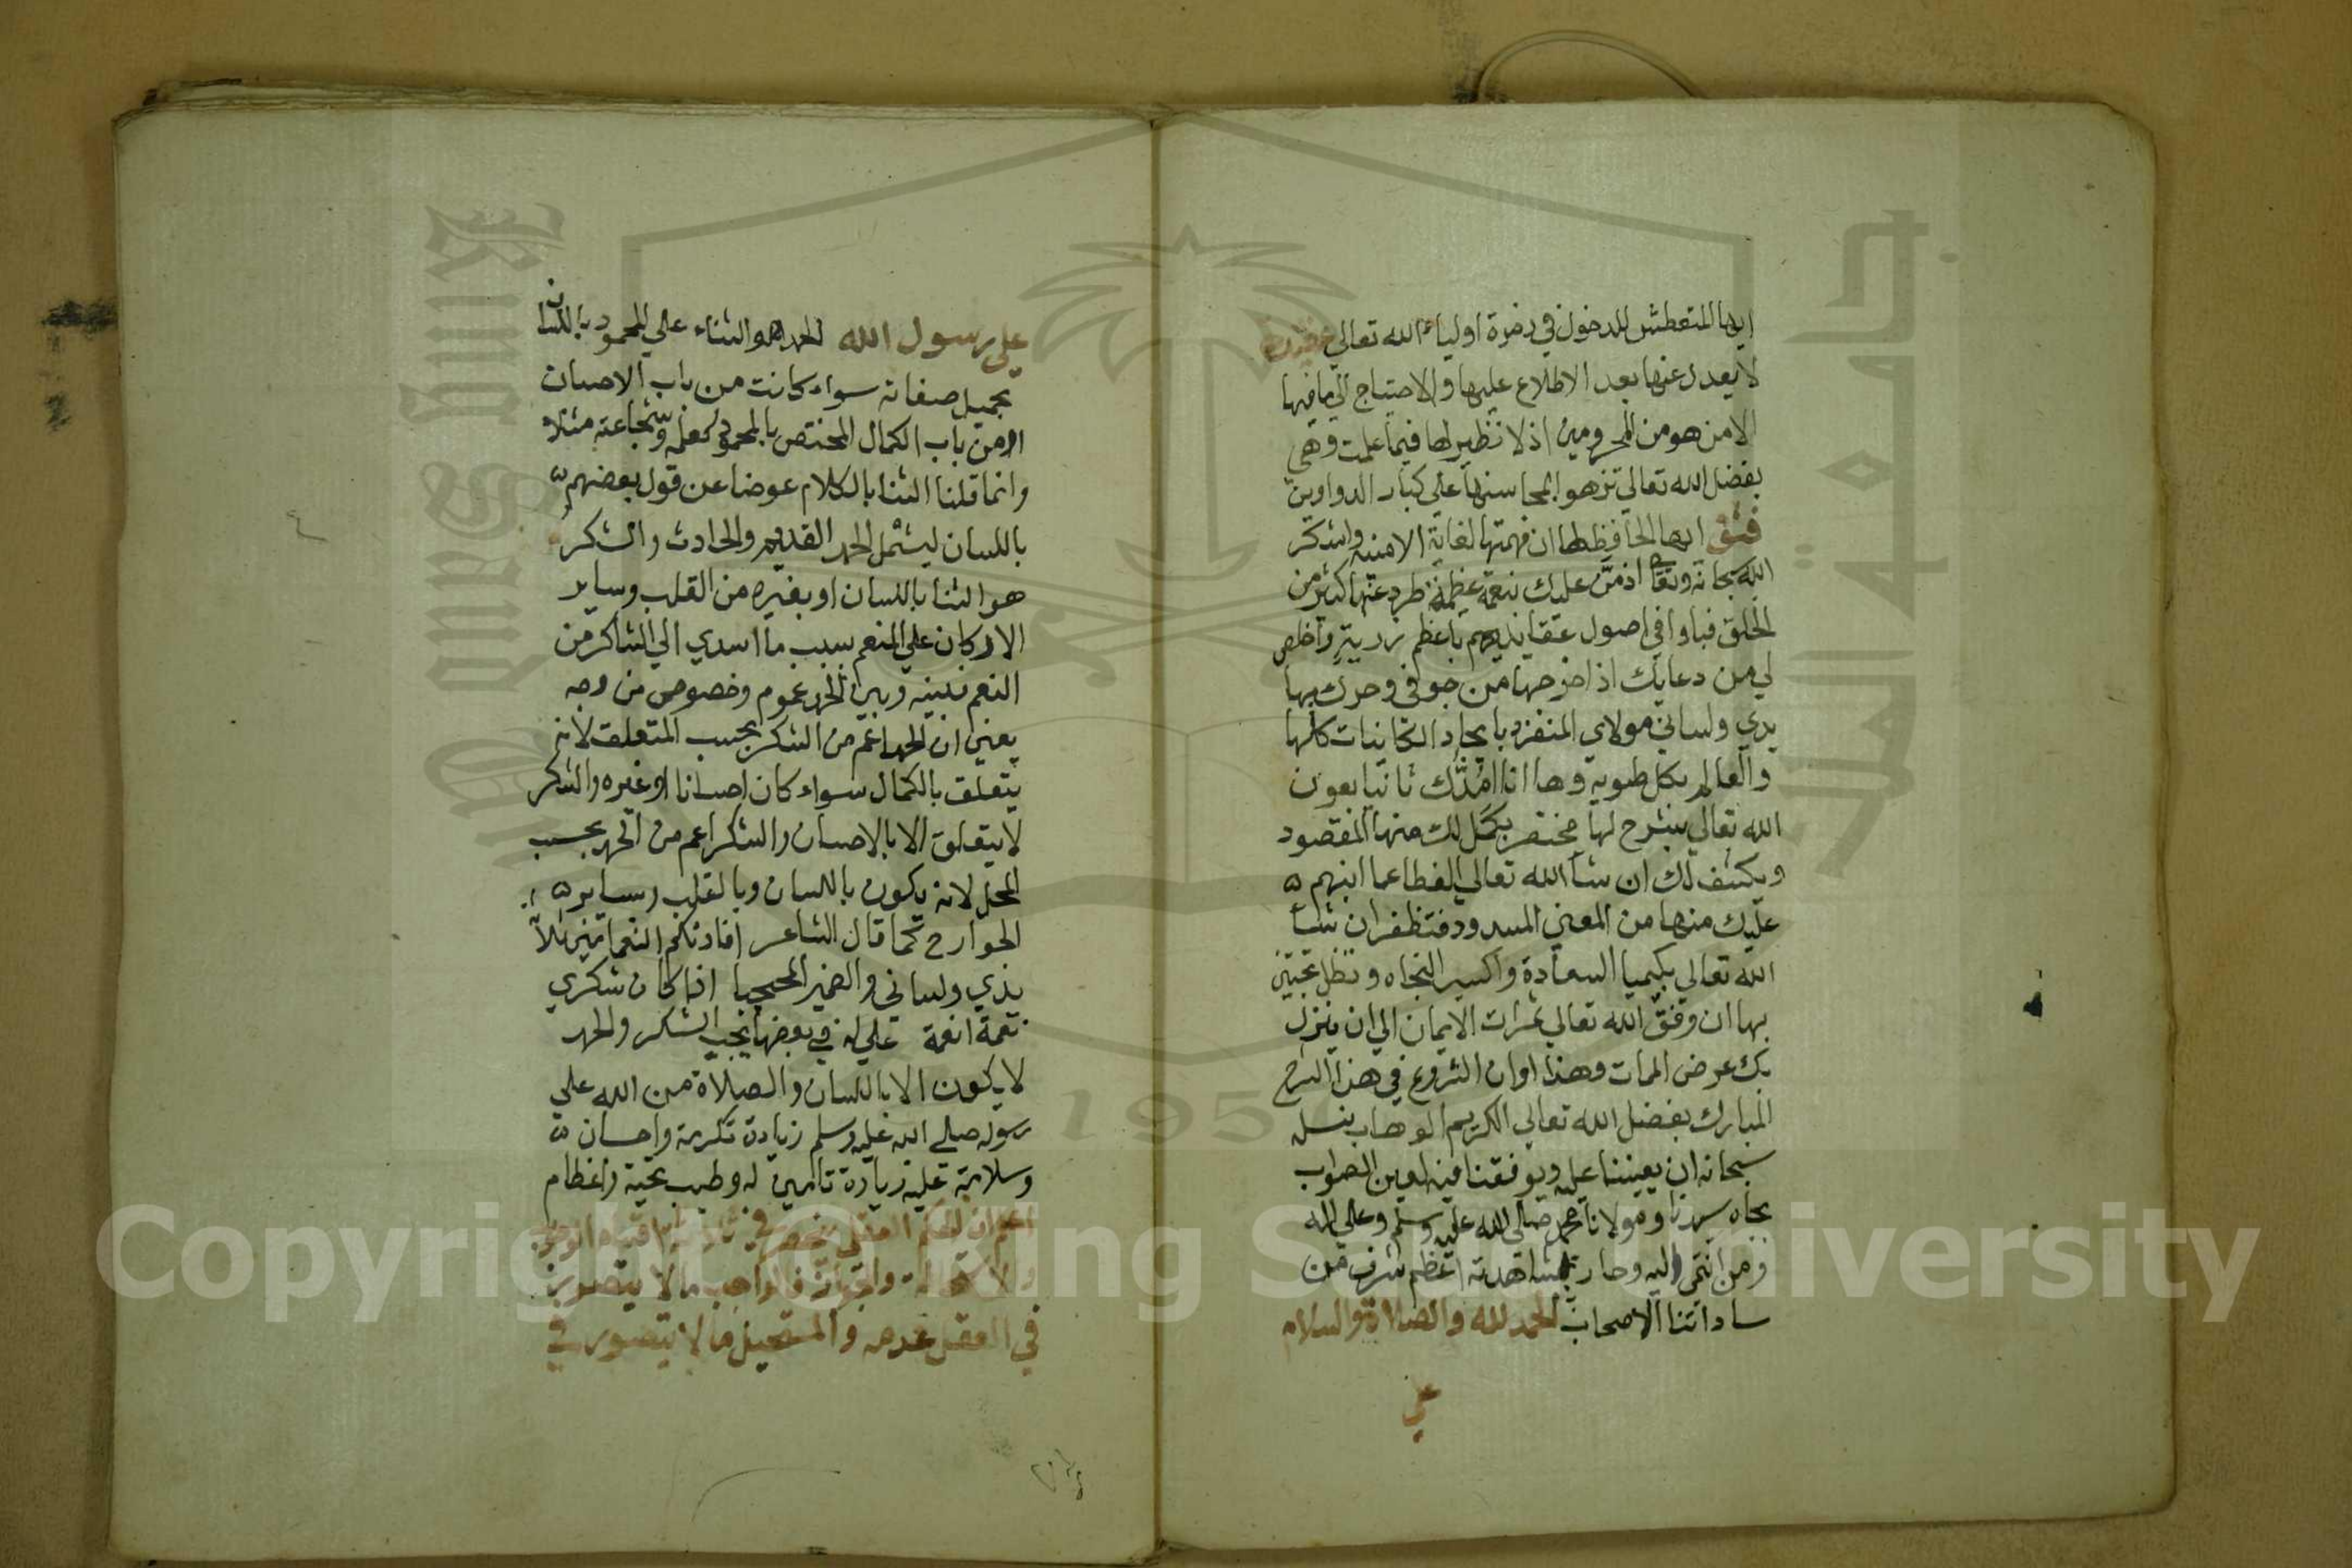 ايها المتعطش للدخول في زمرة اولياء الله تعالي عقيدة
لا يعدل عنها بعد الاطلاع عليها والاحتياج الي ما فيها
الا من هو من المحرومين اذ لا نظير لها فيما علمت وهي
بفضل الله تعالي تزهوا بمحاسنها علي كبار الدواوين
فثق ايها الحافظ لها ان فهمتها لغاية الامنيه واشكر
الله سبحانه وتعالي اذ من عليك بنعمة عظيمة طرد عنها كثير من
الخلق فباوا في اصول عقايدهم باعظم رزية واخلص
لي من دعايك اذ اخرجها من جوفي وحرك بها
يدي ولساني مولاي المنفرد بايجاد الكاينات كلها
والعالم بكل طويه وها انا امدك ثانيا بعون
الله تعالي بشرح لها مختصر يكمل لك منها المقصود
ويكشف لك ان شا الله تعالي الغطا عما انبهم
عليك منها من المعني المسدود فتظفر ان شا
الله تعالي بكيميا السعادة واكسير النجاه وتظل تجتني
بها ان وفق الله تعالي ثمرات الايمان الي ان ينزل
بك عرض الممات وهذا اوان الشروع في هذا الشرح
المبارك بفضل الله تعالي الكريم الوهاب نسله
سبحانه ان يعيننا عليه ويوفقنا فيه لعين الصواب
بجاه سيدنا ومولانا محمد صلي الله عليه وسلم وعلي اله
ومن انتمي اليه وحاز بمشاهدته اعظم شرف من
ساداتنا الاصحاب الحمد لله والصلاة والسلام
علي
علي رسول الله الحمد هو الثناء علي المحمود باللسان
بجميل صفاته سواء كانت من باب الاحسان
او من باب الكمال المختص بالمحمود كعلمه وشجاعته مثلا
وانما قلنا الثنا بالكلام عوضا عن قول بعضهم
باللسان ليشمل الحمد القديم والحادث والشكر
هو الثنا باللسان او بغيره من القلب وساير
الاركان علي المنعم بسبب ما اسدي الي الشاكر من
النعم فبينه وبين الحمد عموم وخصوص من وجه
يعني ان الحمد اعم من الشكر بحسب المتعلق لانه
يتعلق بالكمال سواء كان احسانا او غيره والشكر
لا يتعلق الا بالاحسان والشكر اعم من الحمد بحسب
المحل لانه يكون باللسان وبالقلب وساير
الجوارح كما قال الشاعر افادتكم النعما مني ثلاثا
يدي ولساني والضمير المحجبا اذا كان شكري
نعمة نعمة علي له في بعضها يجب الشكر والحمد
لا يكون الا باللسان والصلاة من الله علي
رسوله صلي الله عليه وسلم زيادة تكرمة واحسان
وسلامه عليه زيادة تامين له وطيب تحية واعظام
اعلم ان الحكم العقلي ينحصر في ثلاثة اقسام الوجوب
والاستحالة والجواز فالواجب ما لا يتصور
في العقل عدمه والمستحيل ما لا يتصور في
Copyright © King Saud University
1957